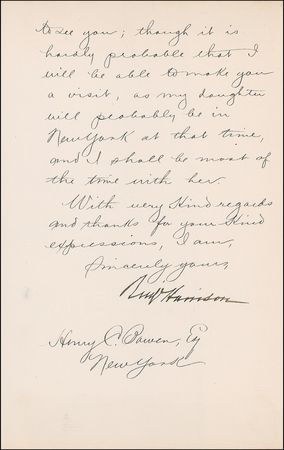 to see you; though it is
hardly probable that I
will be able to make you
a visit, as my daughter
will probably be in
New York at that time,
and I shall be most of
the time with her.
With very kind regards
and thanks for your kind
expressions, I am,
Sincerely yours,
Benj Harrison
Henry C. Bowen, Eq
New York